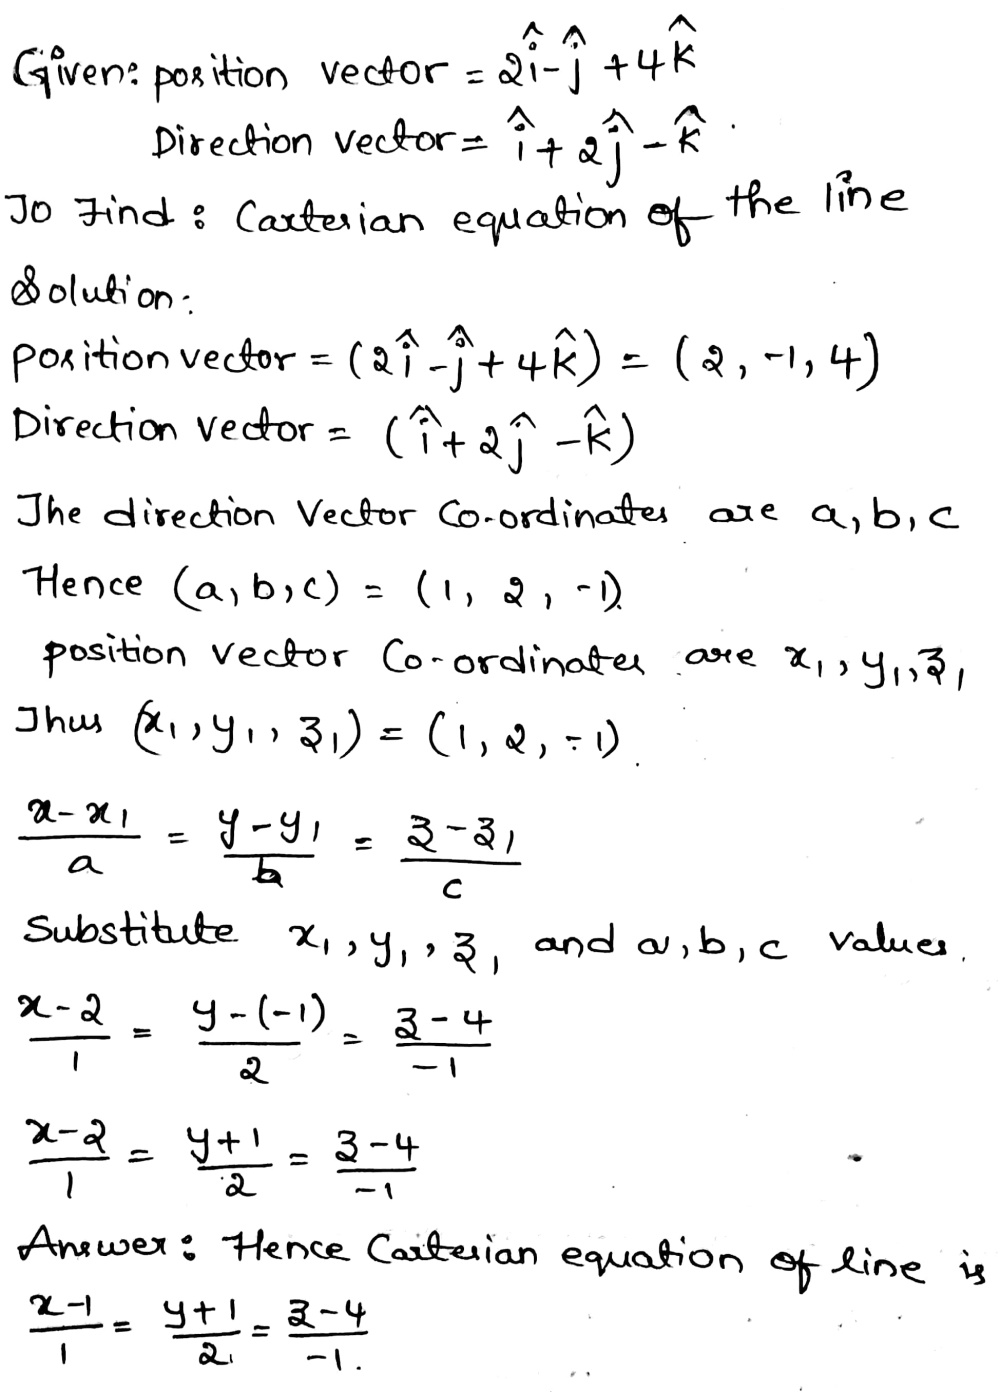 Given: position vector = 2î-ĵ+4k̂
Direction vector = î+2ĵ-k̂
To Find: Cartesian equation of the line
Solution:
position vector = (2î-ĵ+4k̂) = (2,-1,4)
Direction vector = (î+2ĵ-k̂)
The direction Vector Co-ordinates are a,b,c
Hence (a,b,c) = (1,2,-1)
position vector Co-ordinates are x₁,y₁,z₁
Thus (x₁,y₁,z₁) = (1,2,-1)
(x-x₁)/a = (y-y₁)/b = (z-z₁)/c
Substitute x₁,y₁,z₁ and a,b,c values.
(x-2)/1 = (y-(-1))/2 = (z-4)/-1
(x-2)/1 = (y+1)/2 = (z-4)/-1
Answer: Hence Cartesian equation of line is
(x-1)/1 = (y+1)/2 = (z-4)/-1.